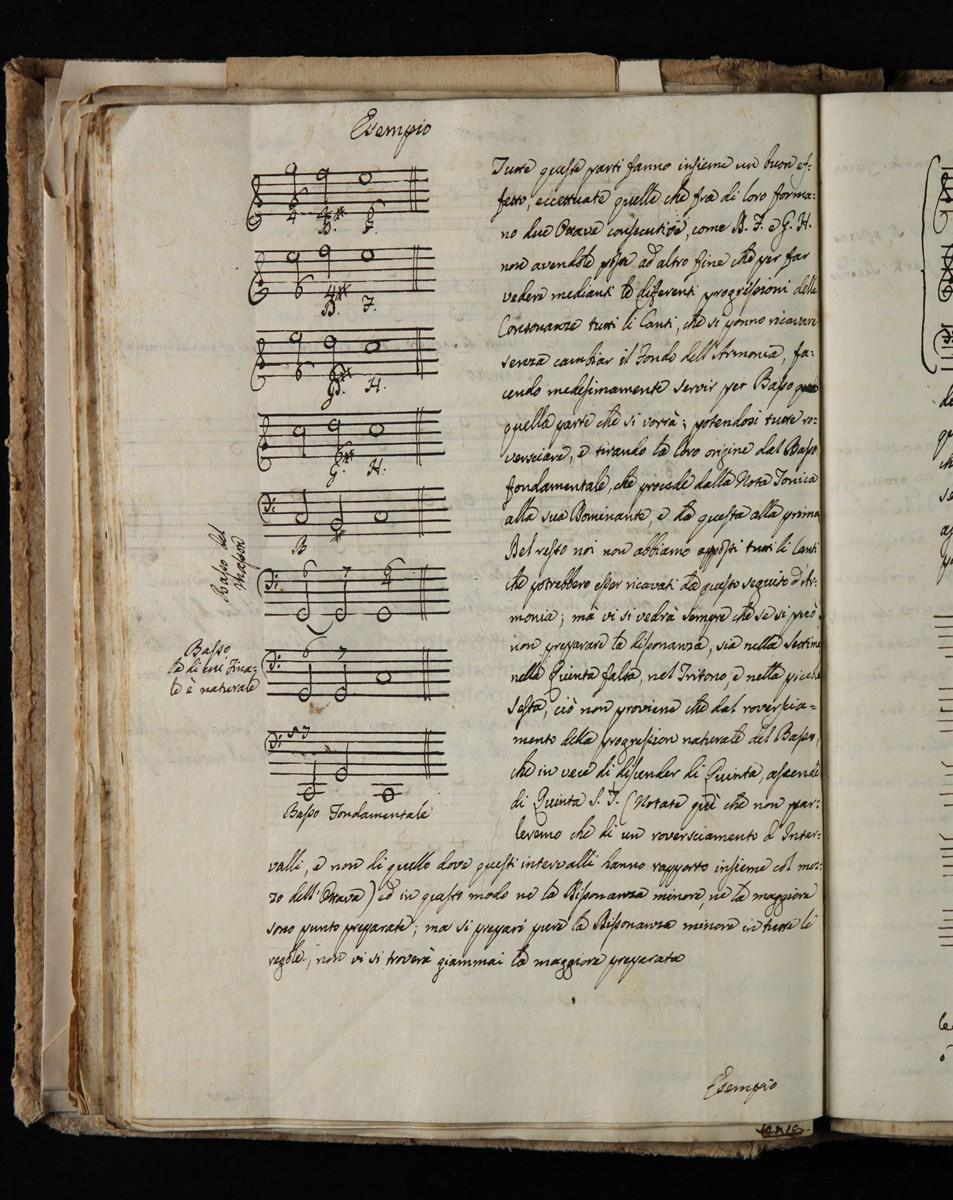 Esempio
6 4 4* 6
B. J.
6 4*
B. J.
6 6*
G. H.
6*
G. H.
B
Basso del
Mason
6 7
6 7
Basso
la di cui Fina-
le è naturale
S J
Basso Fondamentale
Tutte queste parti fanno insieme un buon ef-
fetto, eccettuate quelle che fra di loro forma-
no due Ottave consecutive, come B. J. e G. H.
non avendole poste ad altro fine che per far
vedere medianti le differenti progressioni delle
Consonanze tutti li Canti, che si ponno ricavare
senza cambiar il Fondo dell'Armonia, fa-
cendo medesimamente servir per Basso
quella parte che si vorrà; potendosi tutte ro-
versciare, e tirando la loro origine dal Basso
fondamentale, che procede dalla Nota Tonica
alla sua Dominante, e da questa alla prima
Del resto noi non abbiamo apposti tutti li Canti
che potrebbero esser ricavati da questo seguito d'Ar-
monia; mà vi si vedrà sempre che se si può
non preparare la disonanza, sia nella Settima
nella Quinta falsa, nel Tritono, e nella picola
Sesta, ciò non proviene che dal roverscia-
mento della progression naturale del Basso,
che in vece di discender di Quinta, ascende
di Quinta S. J. (Notate quì che non par-
leremo che di un roversciamento d'Inter-
valli, e non di quello dove questi intervalli hanno rapporto insieme col mez-
zo dell'Ottava) ed in questo modo ne la Dissonanza minore, ne la maggiore
sono punto preparate; ma si prepari pure la Dissonanza minore in tutte le
regole, non vi si troverà giammai la maggiore preparata
Esempio